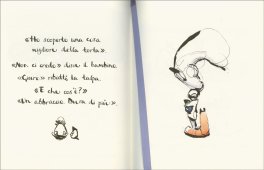 «Ho scoperto una cosa
migliore della torta».
«Non ci credo» disse il bambino.
«Giuro» ribatté la talpa.
«E che cos'è?»
«Un abbraccio. Dura di più».